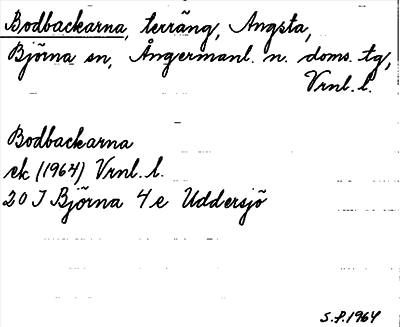 Bodbackarna, terräng, Angsta,
Björna sn, Ångermanl. n. doms. tg,
Vrnl. l.
Bodbackarna
ek (1964) Vrnl. l.
20 J Björna 4 e Uddersjö
S.P. 1964